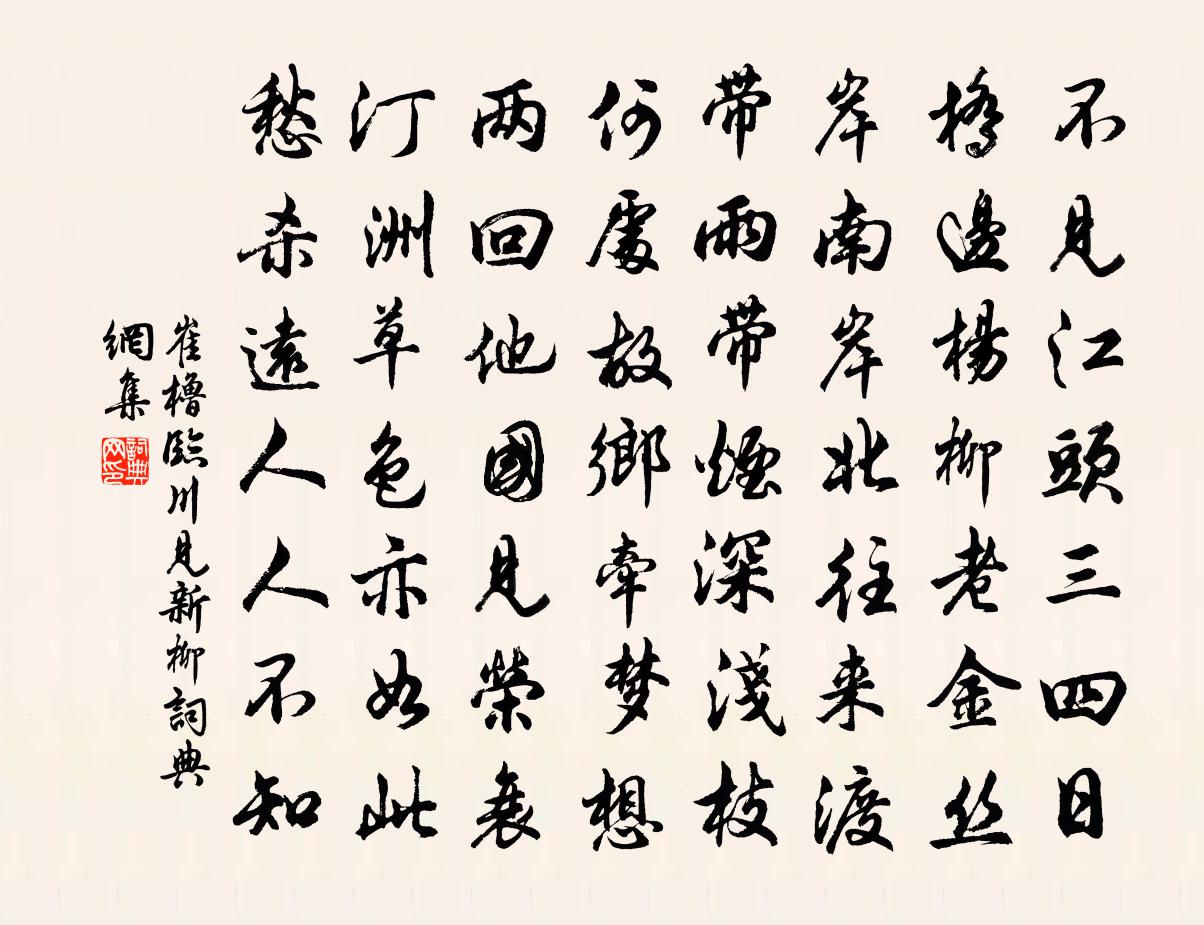 不見江頭三四日
橋邊楊柳老金丝
岸南岸北往来渡
带雨带煙深淺枝
何處故鄉牽梦想
两回他國見榮衰
汀洲草色亦如此
愁杀遠人人不知
崔櫓臨川見新柳詞典
網集
詞典网印